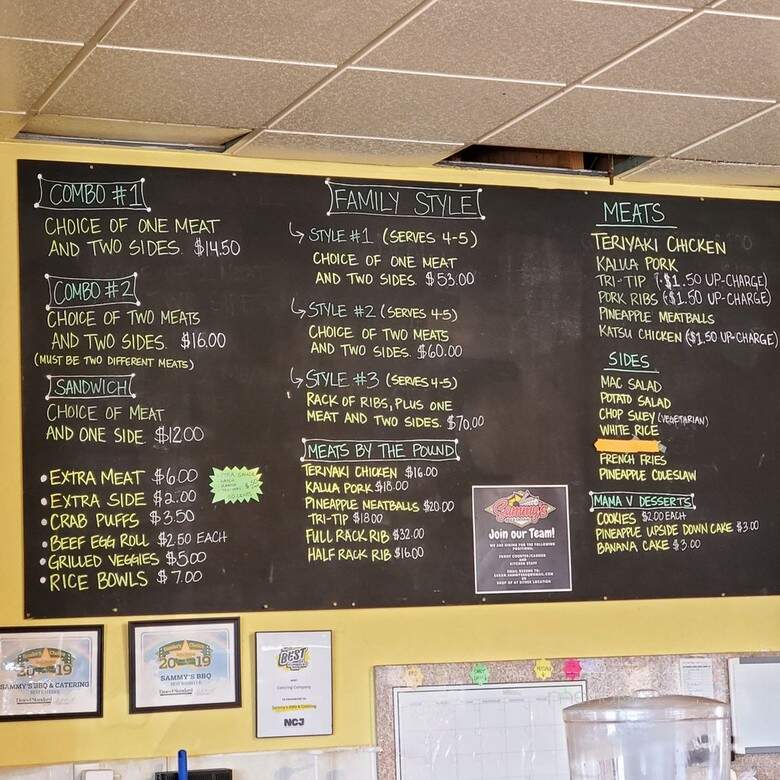 COMBO #1
CHOICE OF ONE MEAT
AND TWO SIDES. $14.50
COMBO #2
CHOICE OF TWO MEATS
AND TWO SIDES. $16.00
(MUST BE TWO DIFFERENT MEATS)
SANDWICH
CHOICE OF MEAT
AND ONE SIDE $12.00
• EXTRA MEAT $6.00
• EXTRA SIDE $2.00
• CRAB PUFFS $3.50
• BEEF EGG ROLL $2.50 EACH
• GRILLED VEGGIES $5.00
• RICE BOWLS $7.00
FAMILY STYLE
STYLE #1 (SERVES 4-5)
CHOICE OF ONE MEAT
AND TWO SIDES. $53.00
STYLE #2 (SERVES 4-5)
CHOICE OF TWO MEATS
AND TWO SIDES. $60.00
STYLE #3 (SERVES 4-5)
RACK OF RIBS, PLUS ONE
MEAT AND TWO SIDES. $70.00
MEATS BY THE POUND
TERIYAKI CHICKEN $16.00
KALUA PORK $18.00
PINEAPPLE MEATBALLS $20.00
TRI-TIP $18.00
FULL RACK RIB $32.00
HALF RACK RIB $16.00
Sammy's
Join our Team!
WE ARE HIRING FOR THE FOLLOWING
POSITIONS:
FRONT COUNTER/CASHIER
AND
KITCHEN STAFF
MEATS
TERIYAKI CHICKEN
KALUA PORK
TRI-TIP (+$1.50 UP-CHARGE)
PORK RIBS (+$1.50 UP-CHARGE)
PINEAPPLE MEATBALLS
KATSU CHICKEN ($1.50 UP-CHARGE)
SIDES
MAC SALAD
POTATO SALAD
CHOP SUEY (VEGETARIAN)
WHITE RICE
FRENCH FRIES
PINEAPPLE COLESLAW
MAMA V DESSERTS
COOKIES $2.00 EACH
PINEAPPLE UPSIDE DOWN CAKE $3.00
BANANA CAKE $3.00
2019
SAMMY'S BBQ & CATERING
2019
SAMMY'S BBQ
BEST
Catering Company
Sammy's BBQ & Catering
NCJ